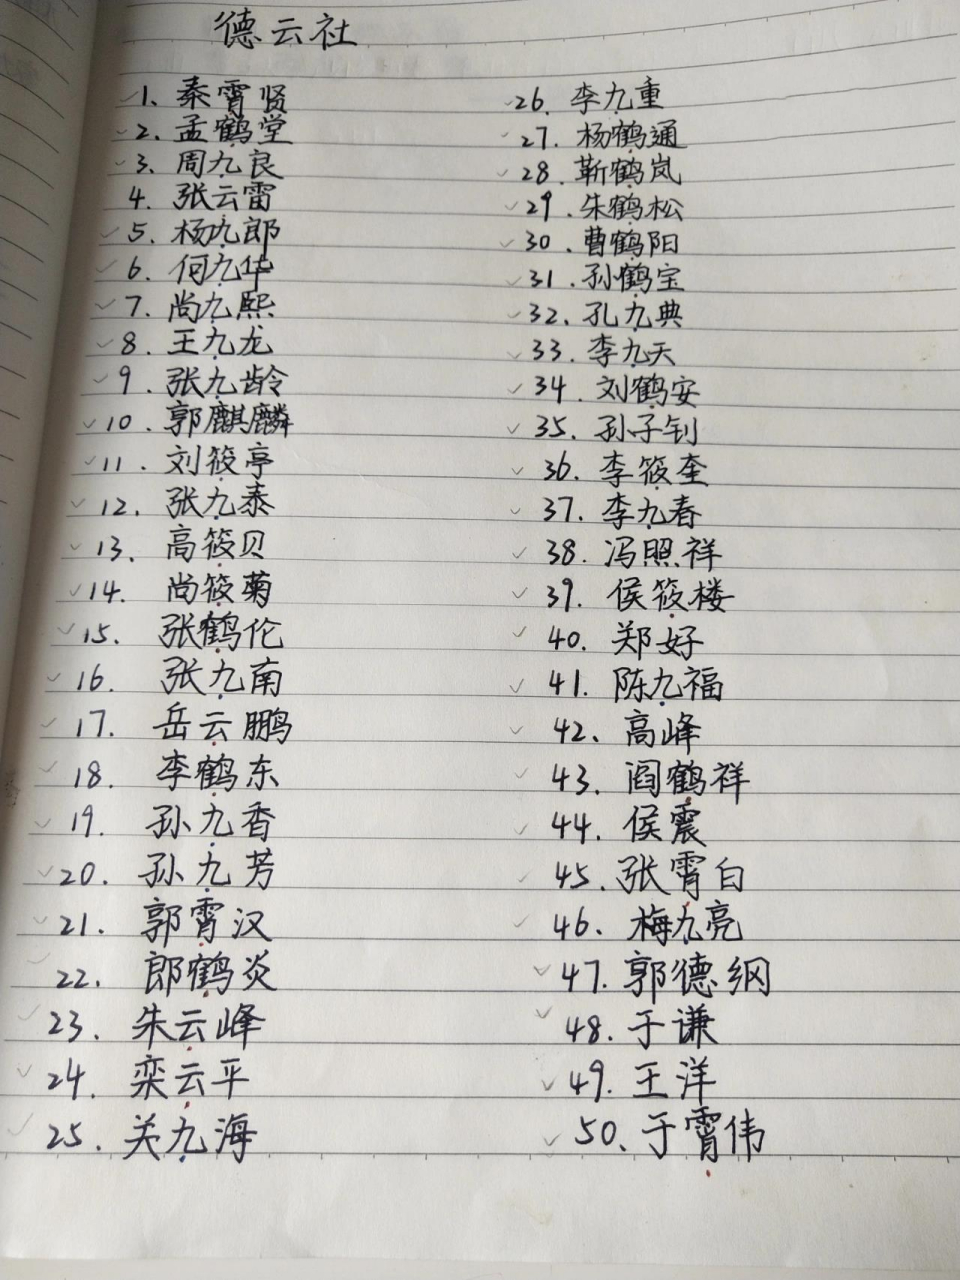 德云社
1、秦霄贤
2、孟鹤堂
3、周九良
4、张云雷
5、杨九郎
6、何九华
7、尚九熙
8、王九龙
9、张九龄
10、郭麒麟
11、刘筱亭
12、张九泰
13、高筱贝
14、尚筱菊
15、张鹤伦
16、张九南
17、岳云鹏
18、李鹤东
19、孙九香
20、孙九芳
21、郭霄汉
22、郎鹤炎
23、朱云峰
24、栾云平
25、关九海
26、李九重
27、杨鹤通
28、靳鹤岚
29、朱鹤松
30、曹鹤阳
31、孙鹤宝
32、孔九典
33、李九天
34、刘鹤安
35、孙子钊
36、李筱奎
37、李九春
38、冯照祥
39、侯筱楼
40、郑好
41、陈九福
42、高峰
43、阎鹤祥
44、侯震
45、张霄白
46、梅九亮
47、郭德纲
48、于谦
49、王洋
50、于霄伟